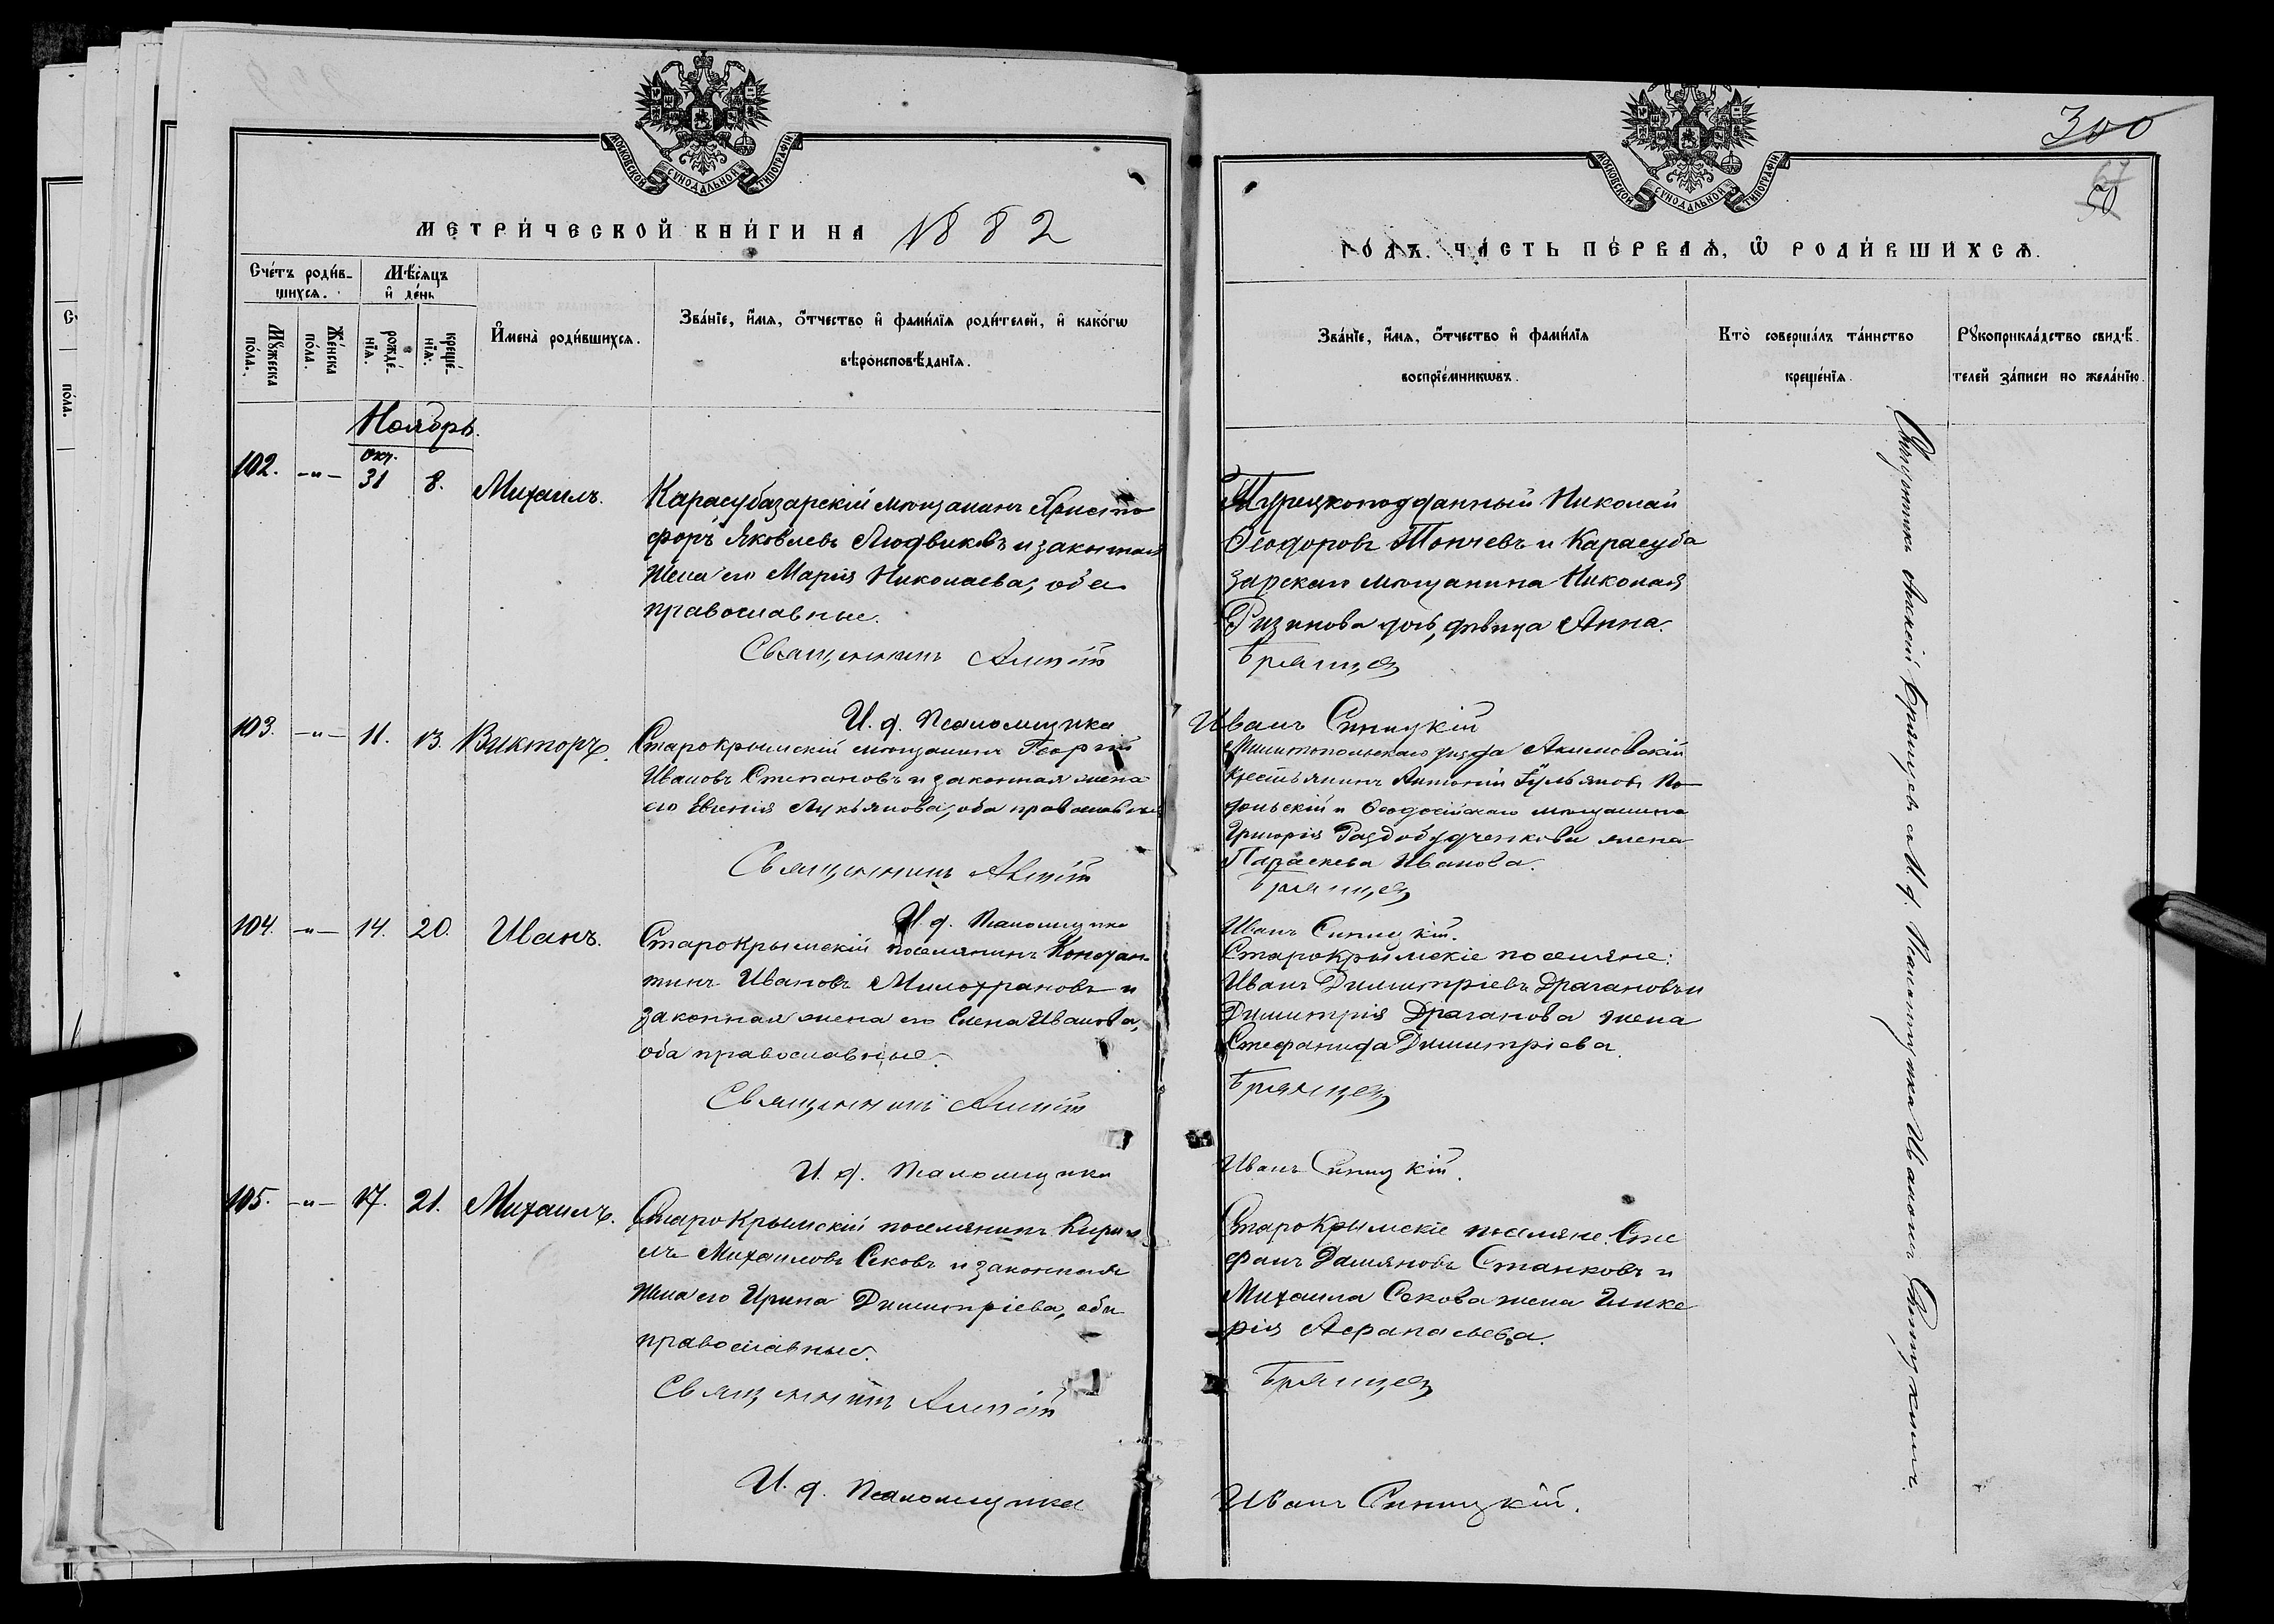 МОСКОВСКОЙ СѴНОДАЛЬНОЙ ТИПОГРАФІИ
МЕТРИ́ЧЕСКОЙ КНИ́ГИ НА 1882
Сче́тъ роди́в-
шихсѧ.
Мѣ́сѧцъ
и҆ де́нь
Мꙋ́жеска
по́ла.
Же́нска
по́ла.
рожде́-
нїѧ.
креще́-
нїѧ.
И҆мена̀ роди́вшихсѧ.
Зва́нїе, и҆́мѧ, ѻ҆́тчество и҆ фами́лїѧ роди́телей, и҆ како́гѡ
вѣроисповѣ́данїѧ.
Ноябрь.
Окт.
102. -"- 31 8. Михаилъ.
Карасубазарскій мѣщанинъ Христо
форъ Яковлевъ Людвиковъ и законная
жена его Марія Николаева, оба
православные.
Священникъ Алексій
И. д. Псаломщика
103. -"- 11. 13. Викторъ.
Старокрымскій мѣщанинъ Георгій
Ивановъ Степановъ и законная жена
его Евгенія Лукьянова, оба православные
Священникъ Алексій
И. д. Псаломщика
104. -"- 14. 20. Иванъ.
Старокрымскій поселянинъ Констан-
тинъ Ивановъ Милофрановъ и
законная жена его Елена Иванова,
оба православные.
Священникъ Алексій
И. д. Псаломщика
105. -"- 17. 21. Михаилъ.
Старокрымскій поселянинъ Кирил
лъ Михаиловъ Сековъ и законная
жена его Ирина Димитріева, оба
православные.
Священникъ Алексій
И. д. Псаломщика
300
67
50
МОСКОВСКОЙ СѴНОДАЛЬНОЙ ТИПОГРАФІИ
ГО́ДЪ, ЧА́СТЬ ПЕ́РВАѦ, Ѡ҆ РОДИ́ВШИХСѦ.
Зва́нїе, и҆́мѧ, ѻ҆́тчество и҆ фами́лїѧ
воспрїе́мникѡвъ.
Кто̀ соверша́лъ та́инство
креще́нїѧ.
Рꙋкоприкла́дство свидѣ́-
телей за́писи по жела́нїю.
Турецкоподданный Николай
Ѳеодоровъ Тончевъ и Карасуба
зарскаго мѣщанина Николая
Ризинова дочь, дѣвица Анна.
Брянцевъ
Иванъ Синицкій
Мелитопольскаго уѣзда Акимовскій
крестьянинъ Антоній Гульяновъ По
дольскій и Ѳеодосійскаго мѣщанина
Григорія Раздобудченкова жена
Параскева Иванова.
Брянцевъ
Иванъ Синицкій.
Старокрымскіе поселяне:
Иванъ Димитріевъ Драгановъ и
Димитрія Драганова жена
Стефанида Димитріева.
Брянцевъ
Иванъ Синицкій.
Старокрымскіе поселяне: Сте
фанъ Дамяновъ Станковъ и
Михаила Секова жена Глике
рія Афанасьева.
Брянцевъ
Иванъ Синицкій.
Священникъ Алексій Брянцевъ съ И. д. Псаломщика Иваномъ Синицкимъ.